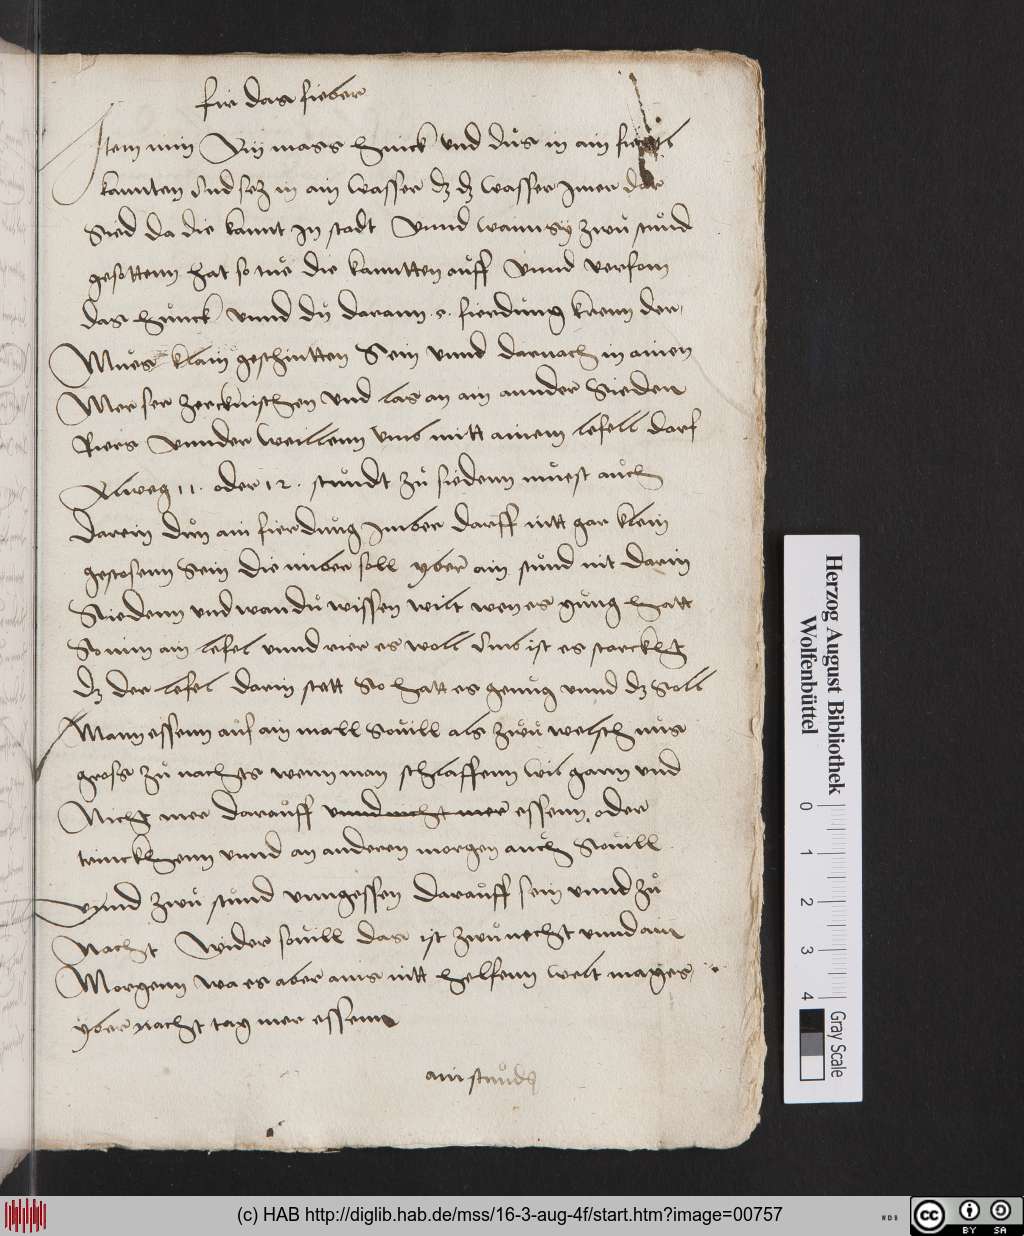 fir das fieber
Item nim ain mass hunick vnd dus in ain
kannten vnd sez in ain wasser dz dz wasser Imer dar
Sied da die kannt In stadt Vnnd wann sy zwu stund
gesottenn hat so tue die kanntten auff Vnnd verfom
das hunick vnnd du darann .2. fierdung krenn der
Mues klain geschnitten Sein vnnd darnach in ainen
Merser zerknischen vnd las an ain annder Sieden
Riers vnnder weillenn vmb mitt ainem leffell darf
Alweg 11. oder 12. stundt zu siedenn muest auch
darein dun ain fierdung Imber darff nitt gar klein
gestosenn Sein die imber soll yber ain stund nit darin
Siedenn vnd wan du wissen wilt wen es gnug hatt
So nim ain lefel vnnd rier es woll vmb ist es starckh
dz der lefel darin stett So hatt es genug vnnd dz Soll
Mann essenn auf ain mall Souill als zwu welsch nus
gross zu nachts wenn man schlaffenn wil gann vnd
Nicht mer darauff vnnd nicht mer essenn oder
trinckhenn vnnd an anderen morgen auch Souill
vnnd zwu stund vnngessen darauff sein vnnd zu
Nacht Wider souill das ist zwu necht vnnd ain
Morgenn wa es aber ains nitt helfenn welt mag es
yber nacht tag mer essenn
ain stund
Herzog August Bibliothek
Wolfenbüttel
0 1 2 3 4
Gray Scale
(c) HAB http://diglib.hab.de/mss/16-3-aug-4f/start.htm?image=00757
WDB
cc BY SA